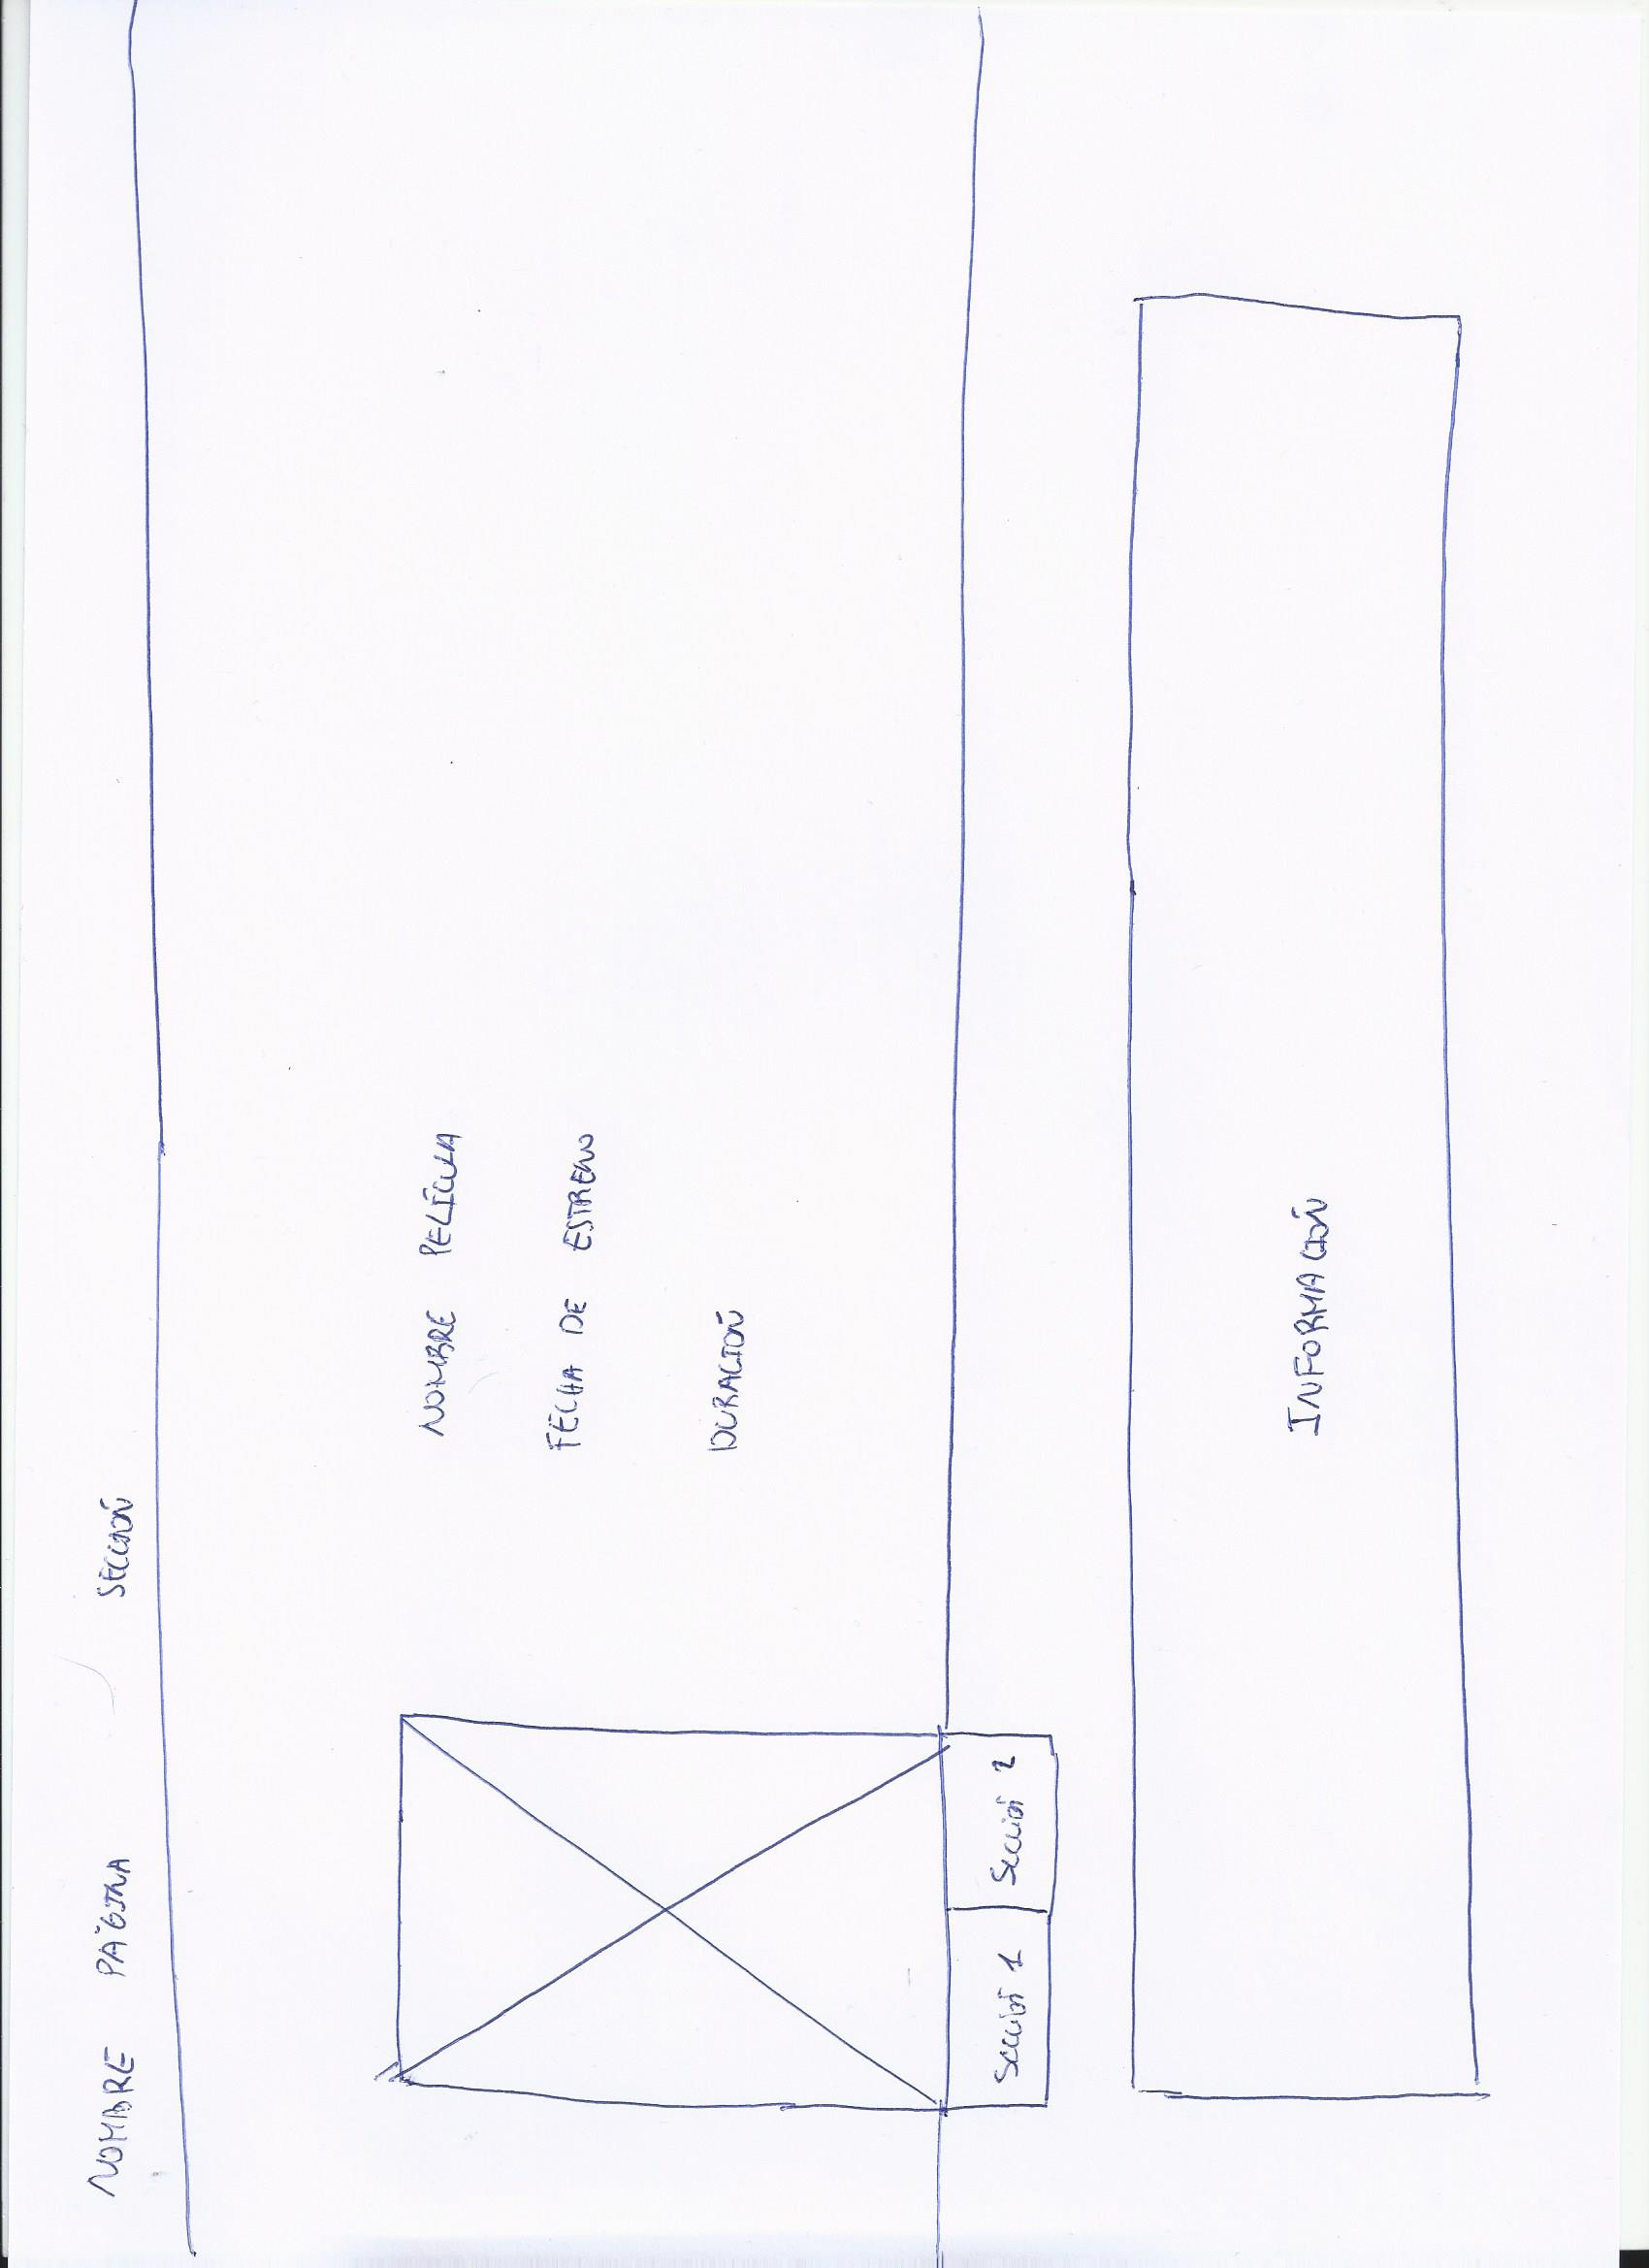 NOMBRE PÁGINA SECCIÓN
NOMBRE PELÍCULA
FECHA DE ESTRENO
DURACIÓN
Sección 1 Sección 2
INFORMACIÓN